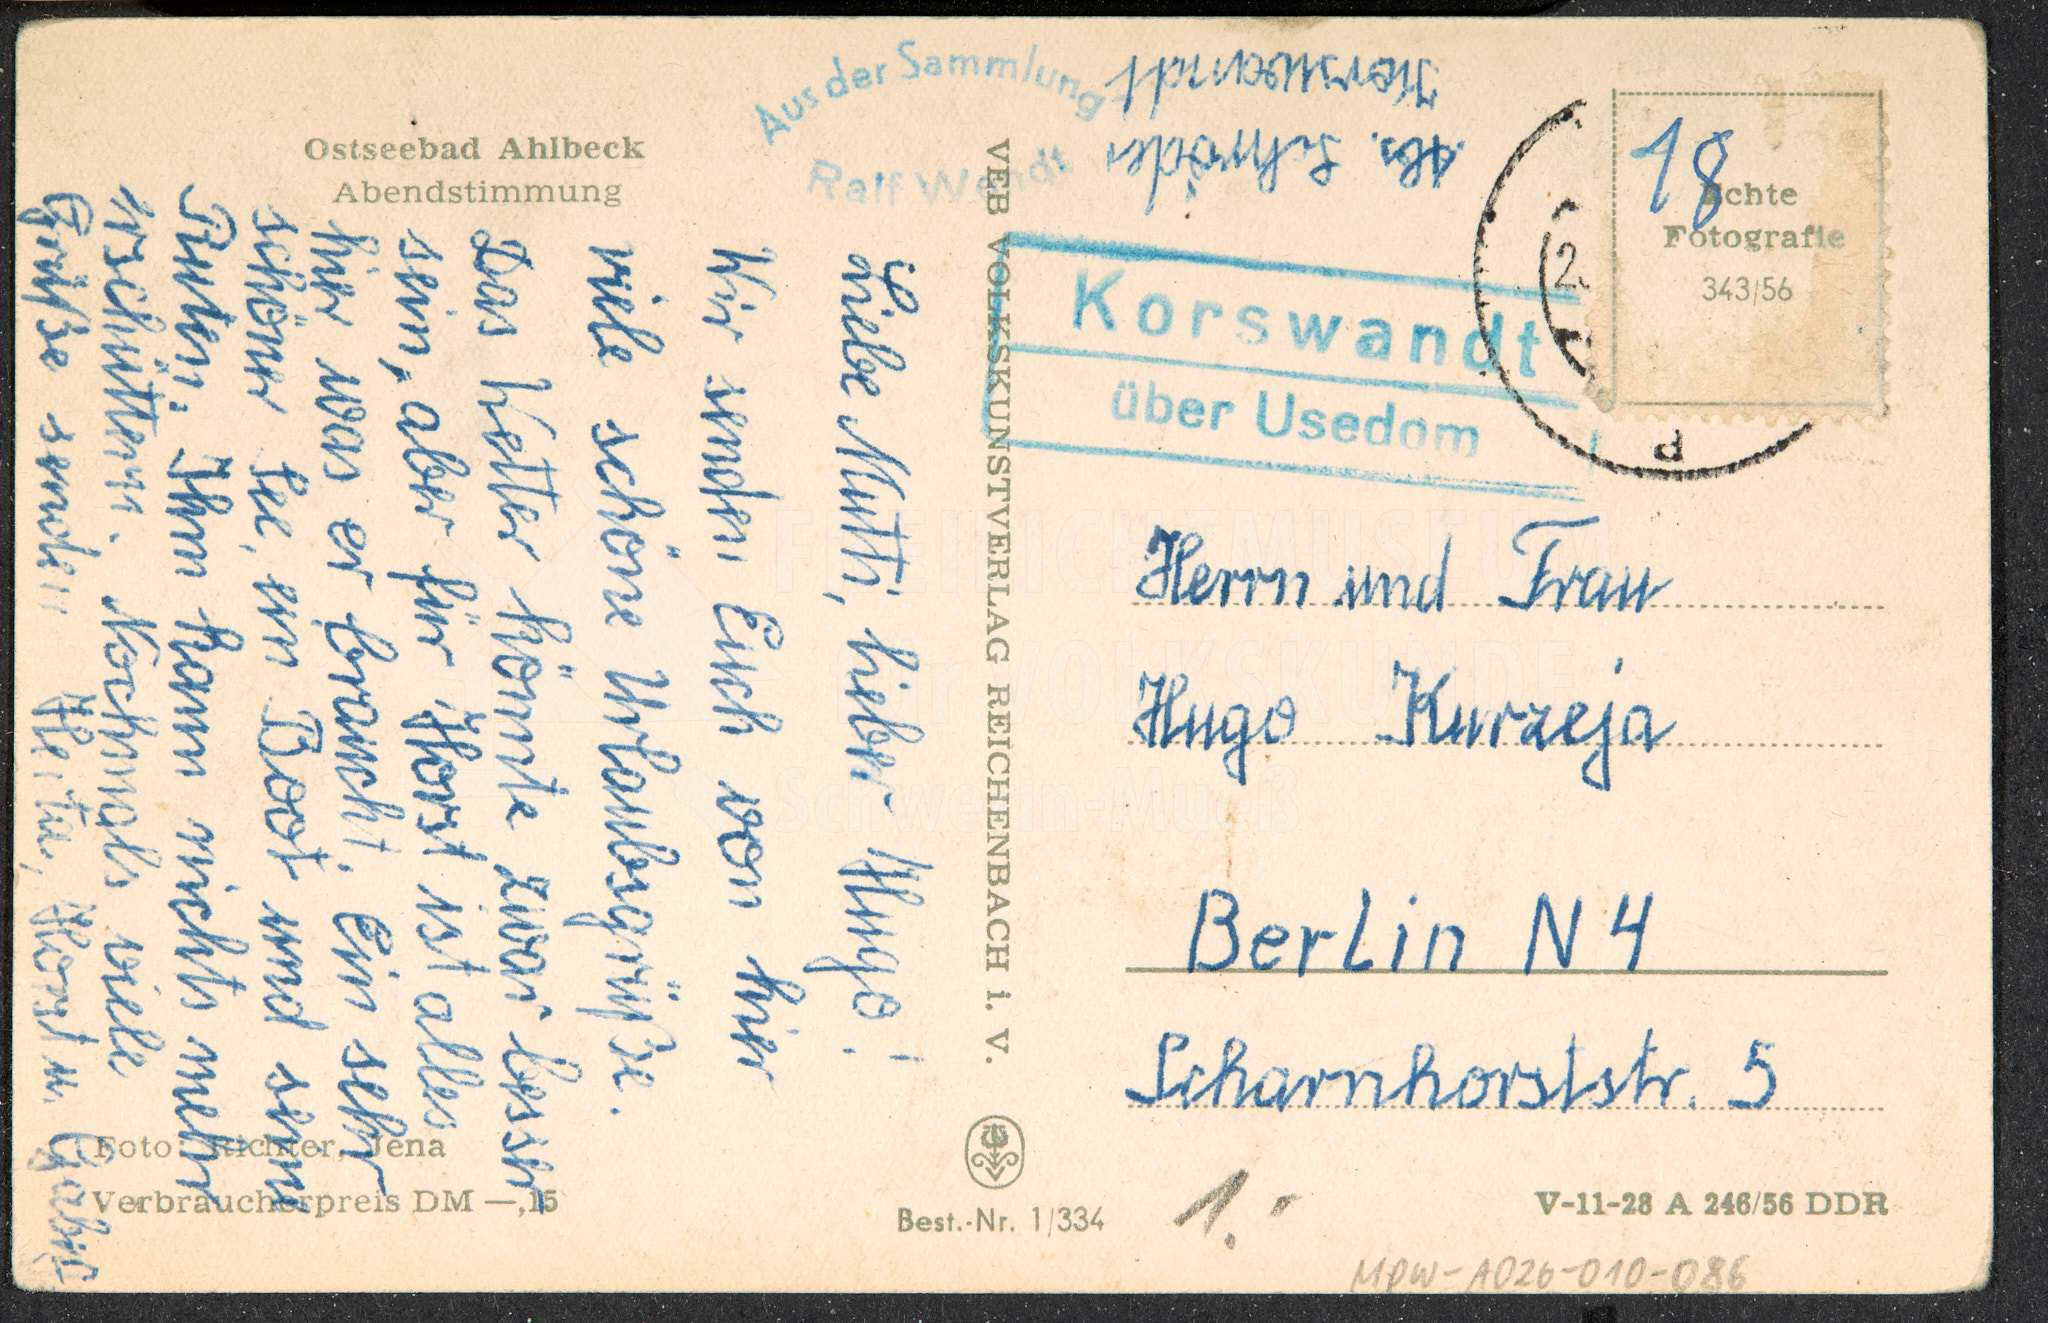 Ostseebad Ahlbeck
Abendstimmung
Aus der Sammlung
Ralf Wendt
Liebe Mutti, lieber Hugo!
Wir senden Euch von hier
viele schöne Urlaubsgrüße.
Das Wetter könnte zwar besser
sein, aber für Horst ist alles
hier was er braucht. Ein sehr
schöner See, ein Boot und seine
Ruten, Ihm kann nichts mehr
erschüttern. Nochmals viele
Grüße senden Herta, Horst u. Gabi
Foto: Richter, Jena
Verbraucherpreis DM —,15
VEB VOLKSKUNSTVERLAG REICHENBACH i. V.
Best.-Nr. 1/334
Abs. Schröder
Korswandt
Korswandt
über Usedom
18
Echte
Fotografie
343/56
Herrn und Frau
Hugo Kurzeja
Berlin N 4
Scharnhorststr. 5
1.-
V-11-28 A 246/56 DDR
MPW-A026-010-086
FREILICHTMUSEUM
für VOLKSKUNDE
Schwerin-Mueß